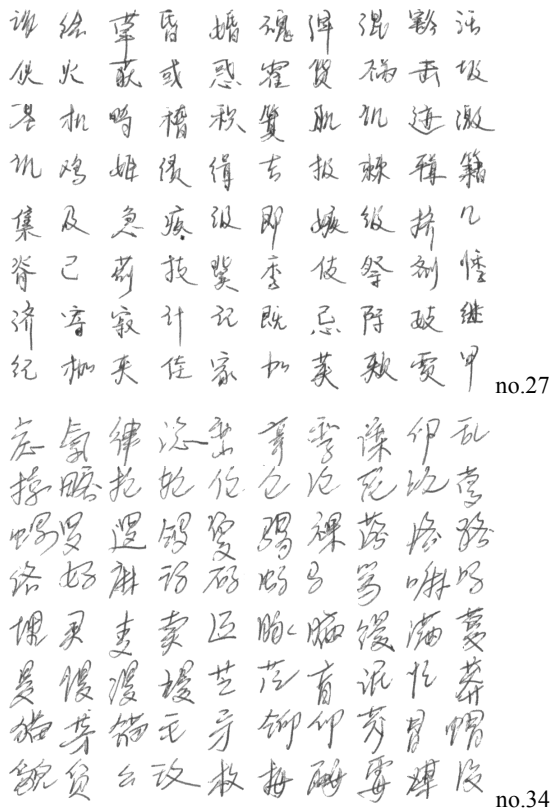 诲绘荤昏婚魂浑混豁活
伙火获或惑霍货祸击圾
基机畸稽积箕肌饥迹激
讥鸡姬绩缉吉极棘辑籍
集及急疾汲即嫉级挤几
脊己蓟技冀季伎祭剂悸
济寄寂计记既忌际妓继
纪枷夹佳家加荚颊贾甲
no.27
虑氯律滤峦挛孪滦卵乱
掠略抡轮伦仑沦纶论萝
螺罗逻锣箩骡裸落洛骆
络妈麻玛码蚂马骂嘛吗
埋买麦卖迈脉瞒馒满蔓
曼慢漫谩芒茫盲氓忙莽
猫茅锚毛矛铆卯茂冒帽
貌贸么玫枚梅酶霉煤没
no.34